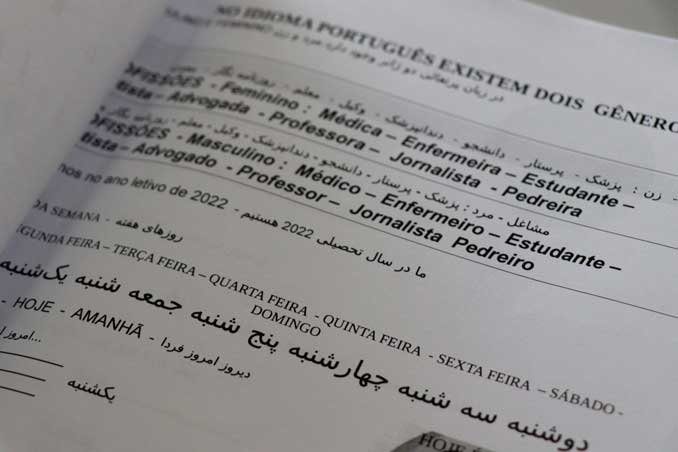 NO IDIOMA PORTUGUÊS EXISTEM DOIS GÊNERO
در زبان پرتغالی دو ژانر وجود دارد مرد و زن
زن : پزشک - پرستار - دانشجو - دندانپزشک - وکیل - معلم - روزنامه نگار
OFISSÕES - Feminino : Médica – Enfermeira – Estudante –
tista – Advogada - Professora – Jornalista - Pedreira
مشاغل - مرد : پزشک - پرستار - دانشجو - دندانپزشک - وکیل - معلم - روزنامه نگار
OFISSÕES - Masculino : Médico – Enfermeiro – Estudante –
tista – Advogado - Professor – Jornalista Pedreiro
nos no ano letivo de 2022 - ما در سال تحصیلی 2022 هستیم
DA SEMANA - روزهای هفته
EGUNDA FEIRA – TERÇA FEIRA – QUARTA FEIRA - QUINTA FEIRA - SEXTA FEIRA – SÁBADO -
DOMINGO
دوشنبه سه شنبه چهارشنبه پنج شنبه جمعه شنبه یکشنبه
- HOJE - AMANHÃ - دیروز امروز فردا
امروز...
یکشنبه
HOJE É